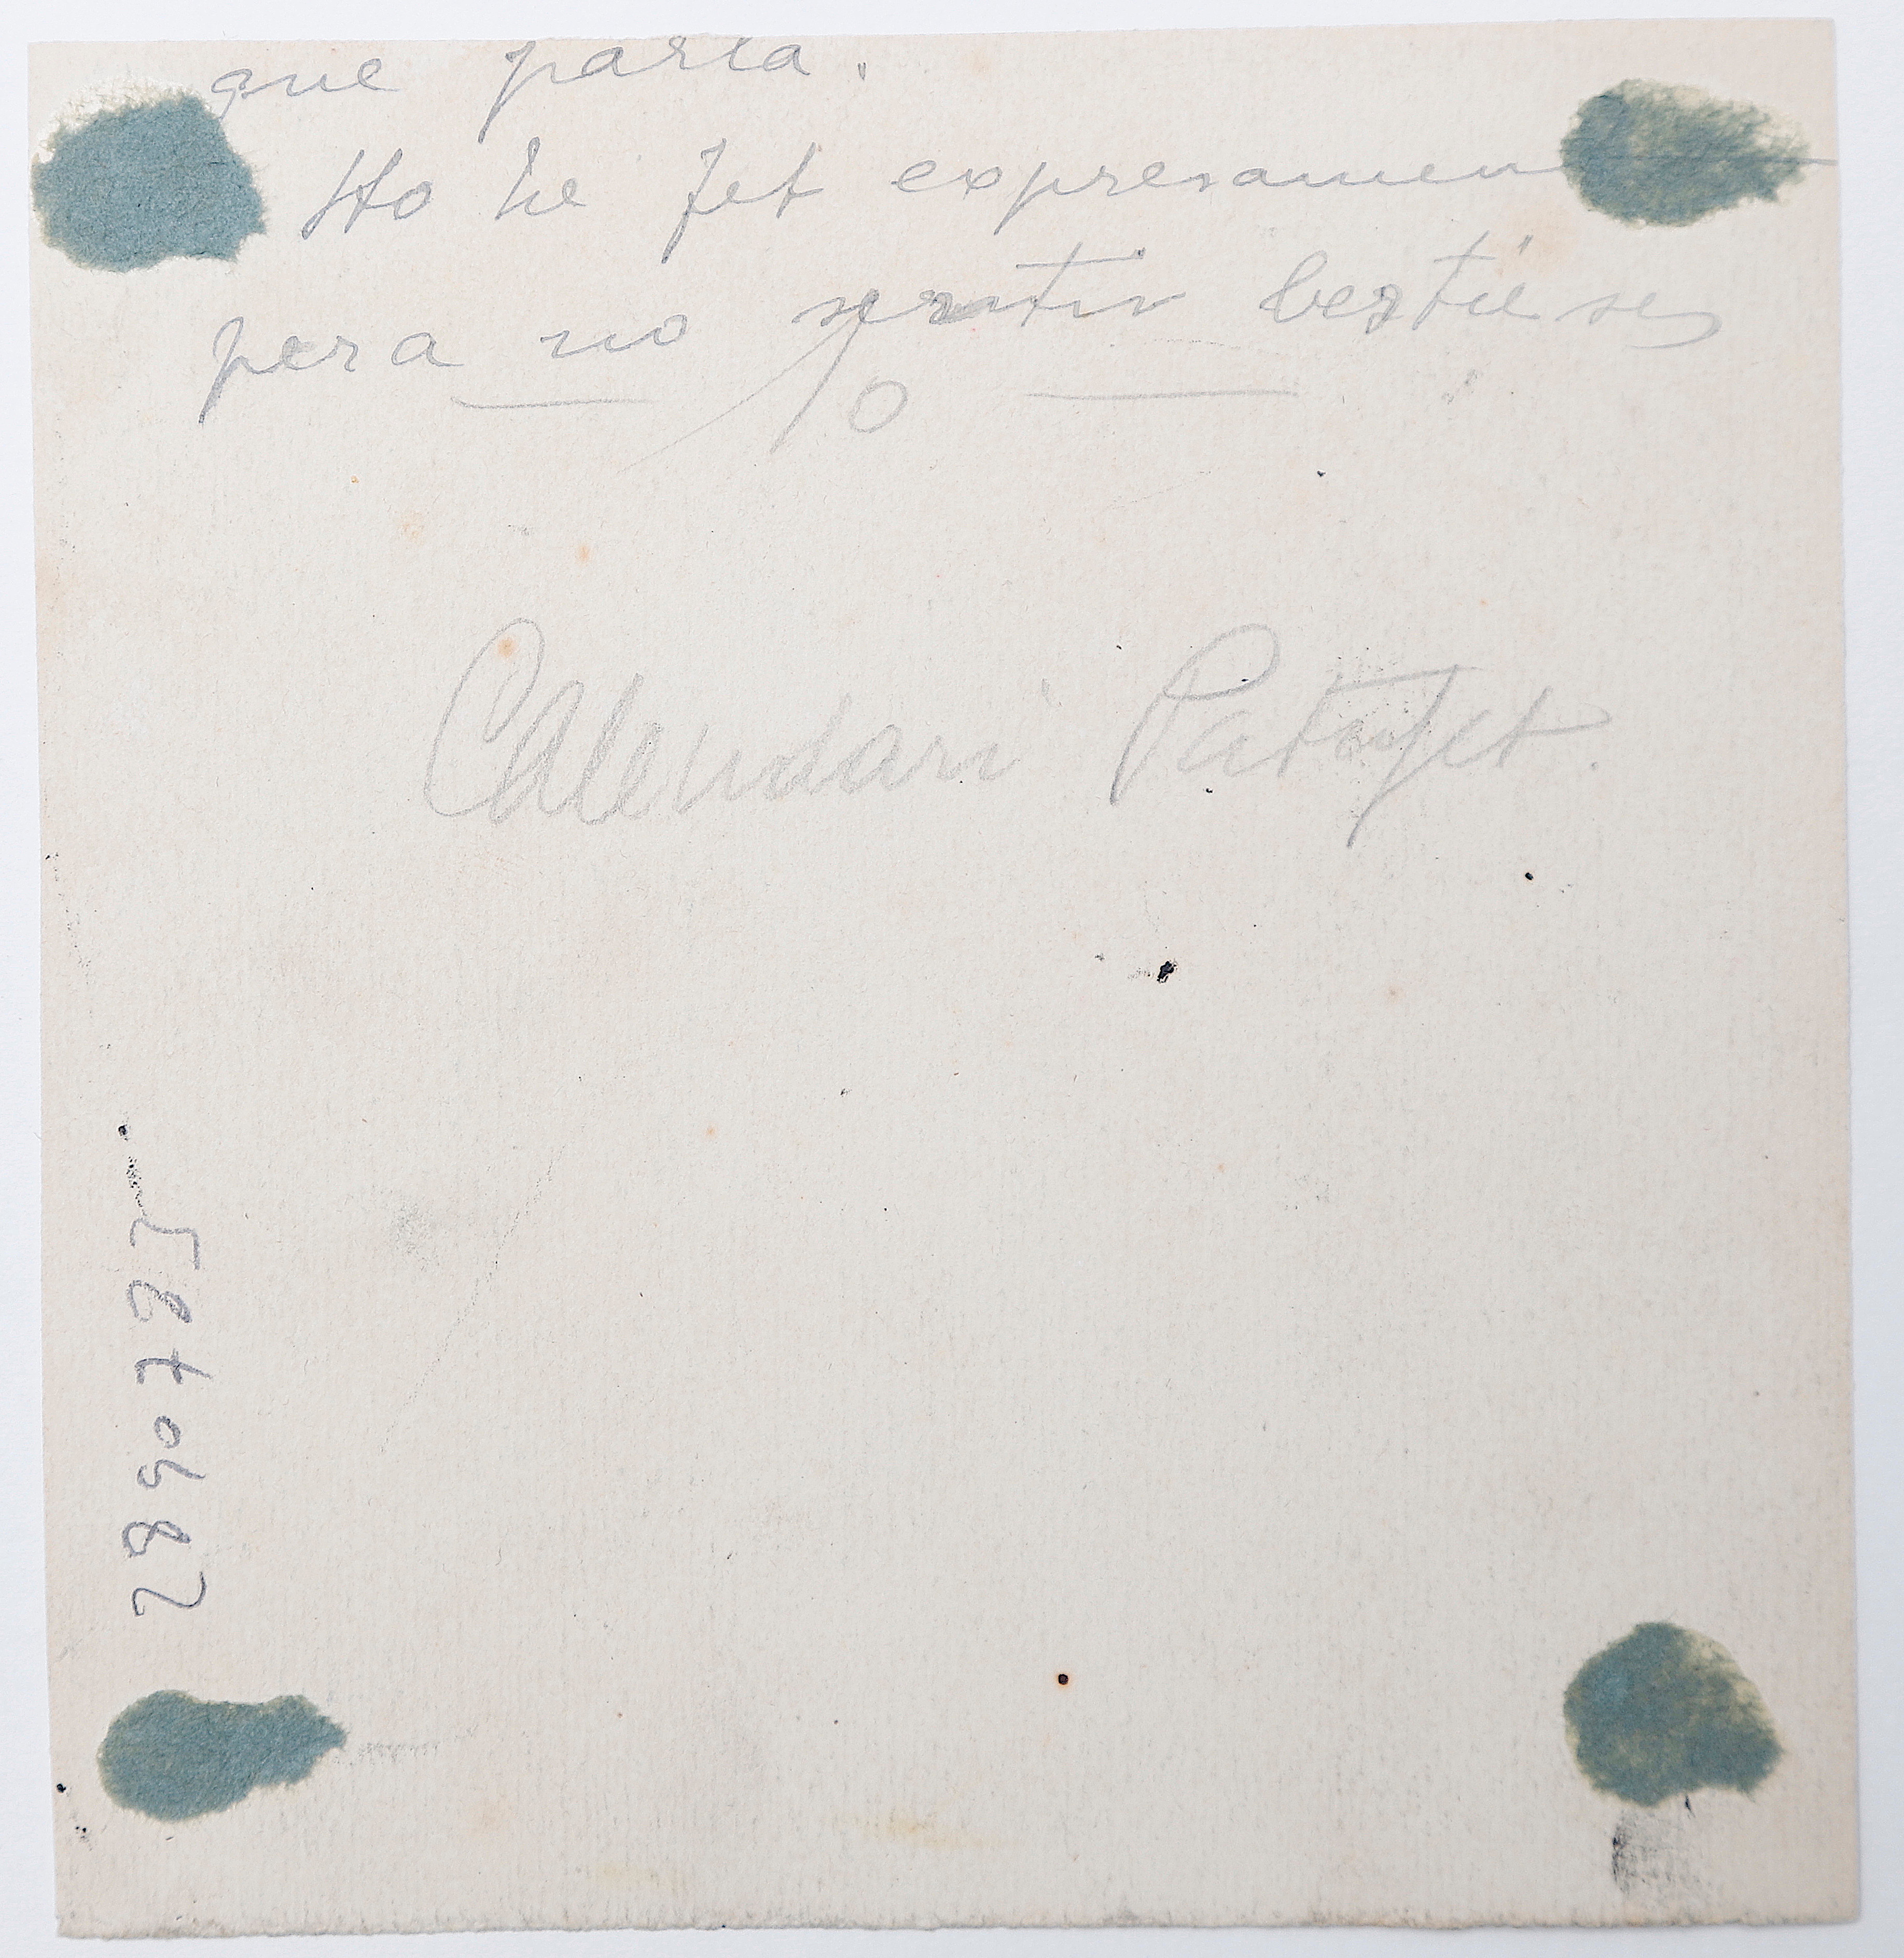 que parla.
Ho he fet expresamen
pera no sentir bestieses
Calendari Patufet.
2890785